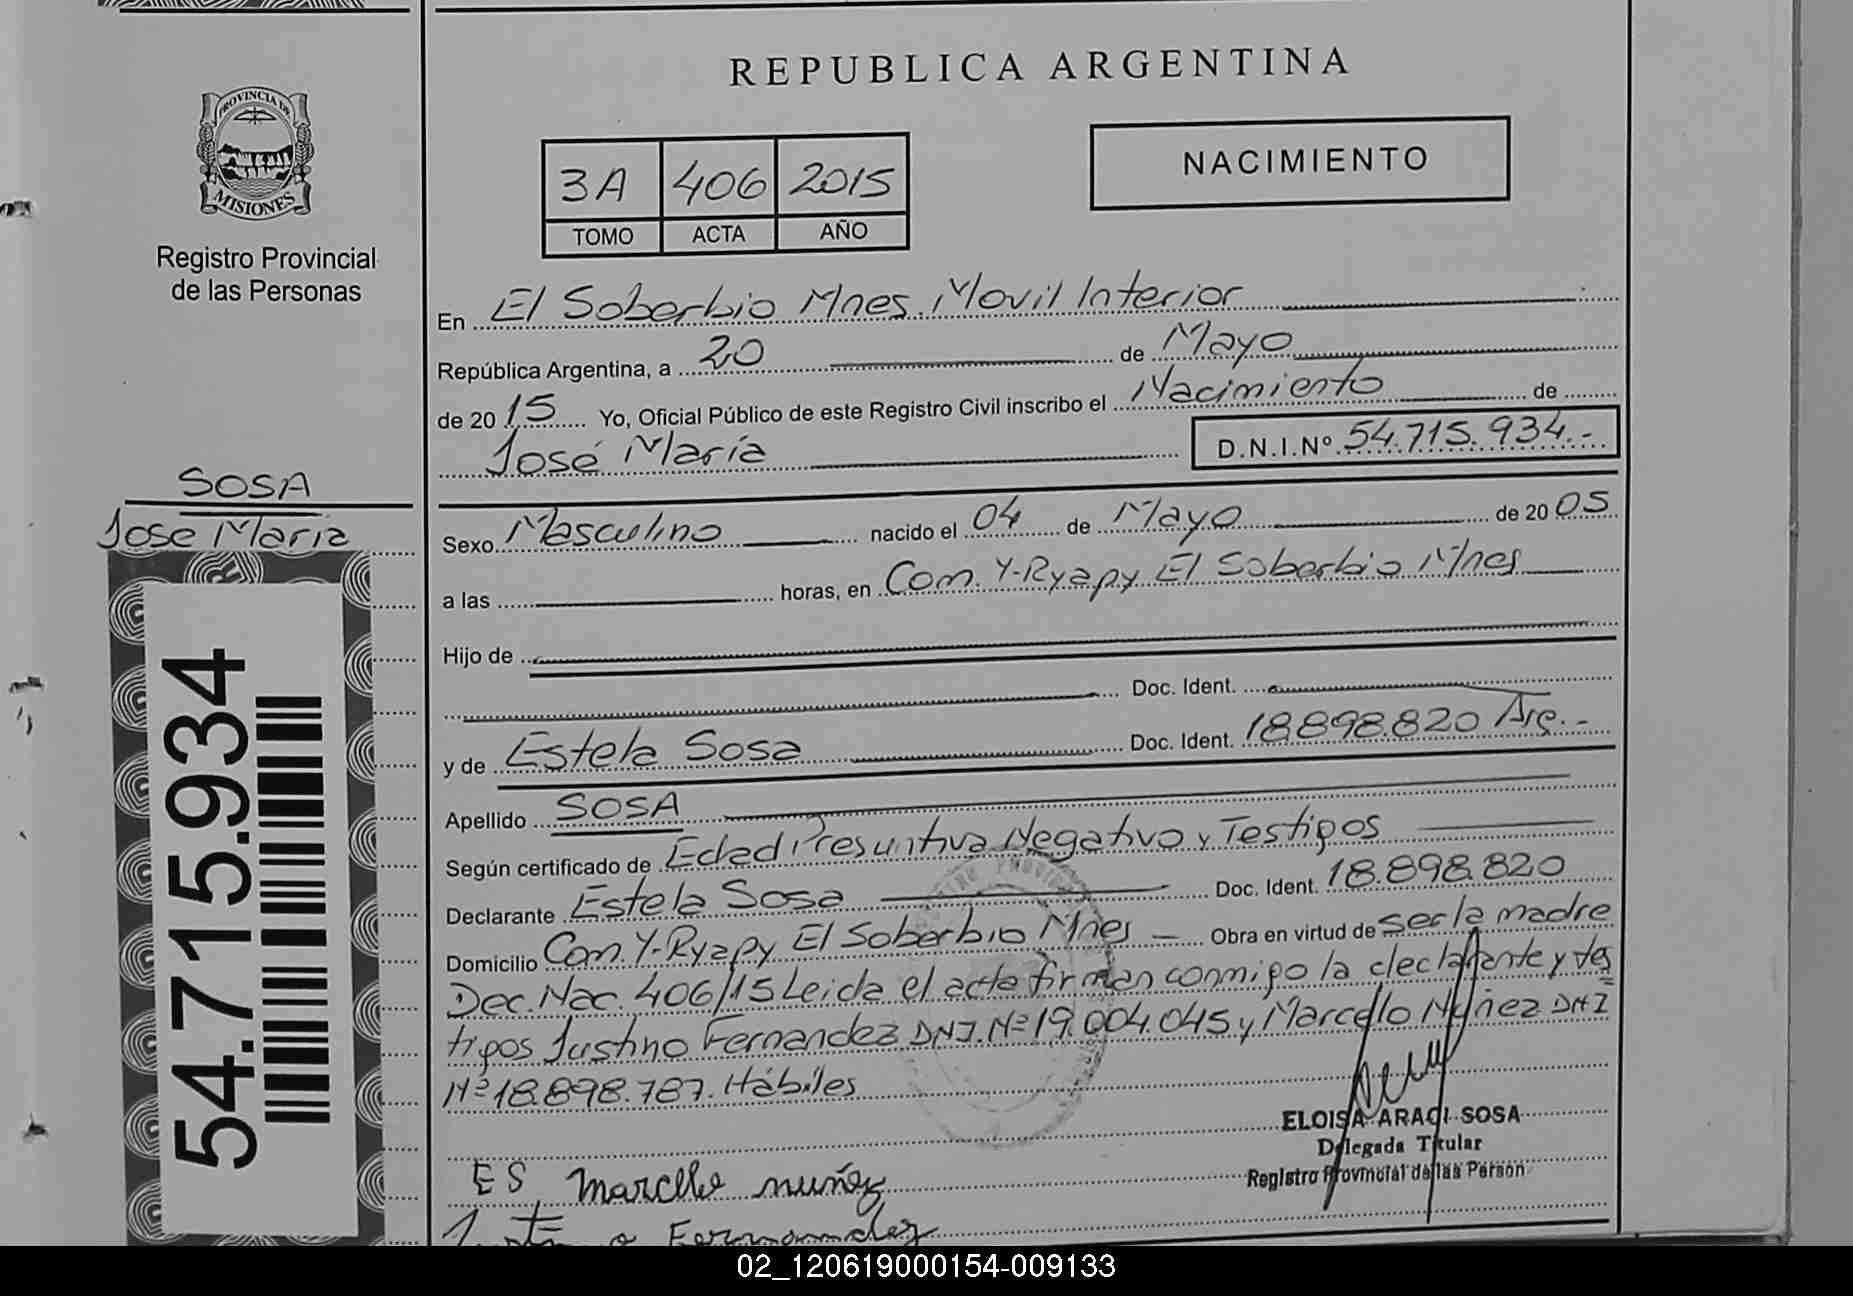 REPUBLICA ARGENTINA
PROVINCIA DE
MISIONES
Registro Provincial
de las Personas
3A 406 2015
TOMO ACTA AÑO
NACIMIENTO
En El Soberbio Mnes. Movil Interior
República Argentina, a 20 de Mayo
de 2015 Yo, Oficial Público de este Registro Civil inscribo el Nacimiento de
José María D.N.I.Nº 54.715.934.-
SOSA
Jose María
54.715.934
Sexo Masculino nacido el 04 de Mayo de 2005
a las horas, en Com. Y-Ryapy El Soberbio Mnes
Hijo de
Doc. Ident.
y de Estela Sosa Doc. Ident. 18.898.820 Arg.-
Apellido SOSA
Según certificado de Edad Presuntiva Negativo y Testigos
Declarante Estela Sosa Doc. Ident. 18.898.820
Domicilio Com. Y-Ryapy El Soberbio Mnes Obra en virtud de ser la madre
Dec. Nac. 406/15 Leida el acta firman conmigo la declarante y tes
tigos Justino Fernandez DNI. Nº 19.004.045 y Marcelo Nuñez DNI
Nº 18.898.787. Hábiles
ELOISA ARACI SOSA
Delegada Titular
Registro Provincial de las Person
ES Marcelo nuñez
Justino Fernandez
02_120619000154-009133